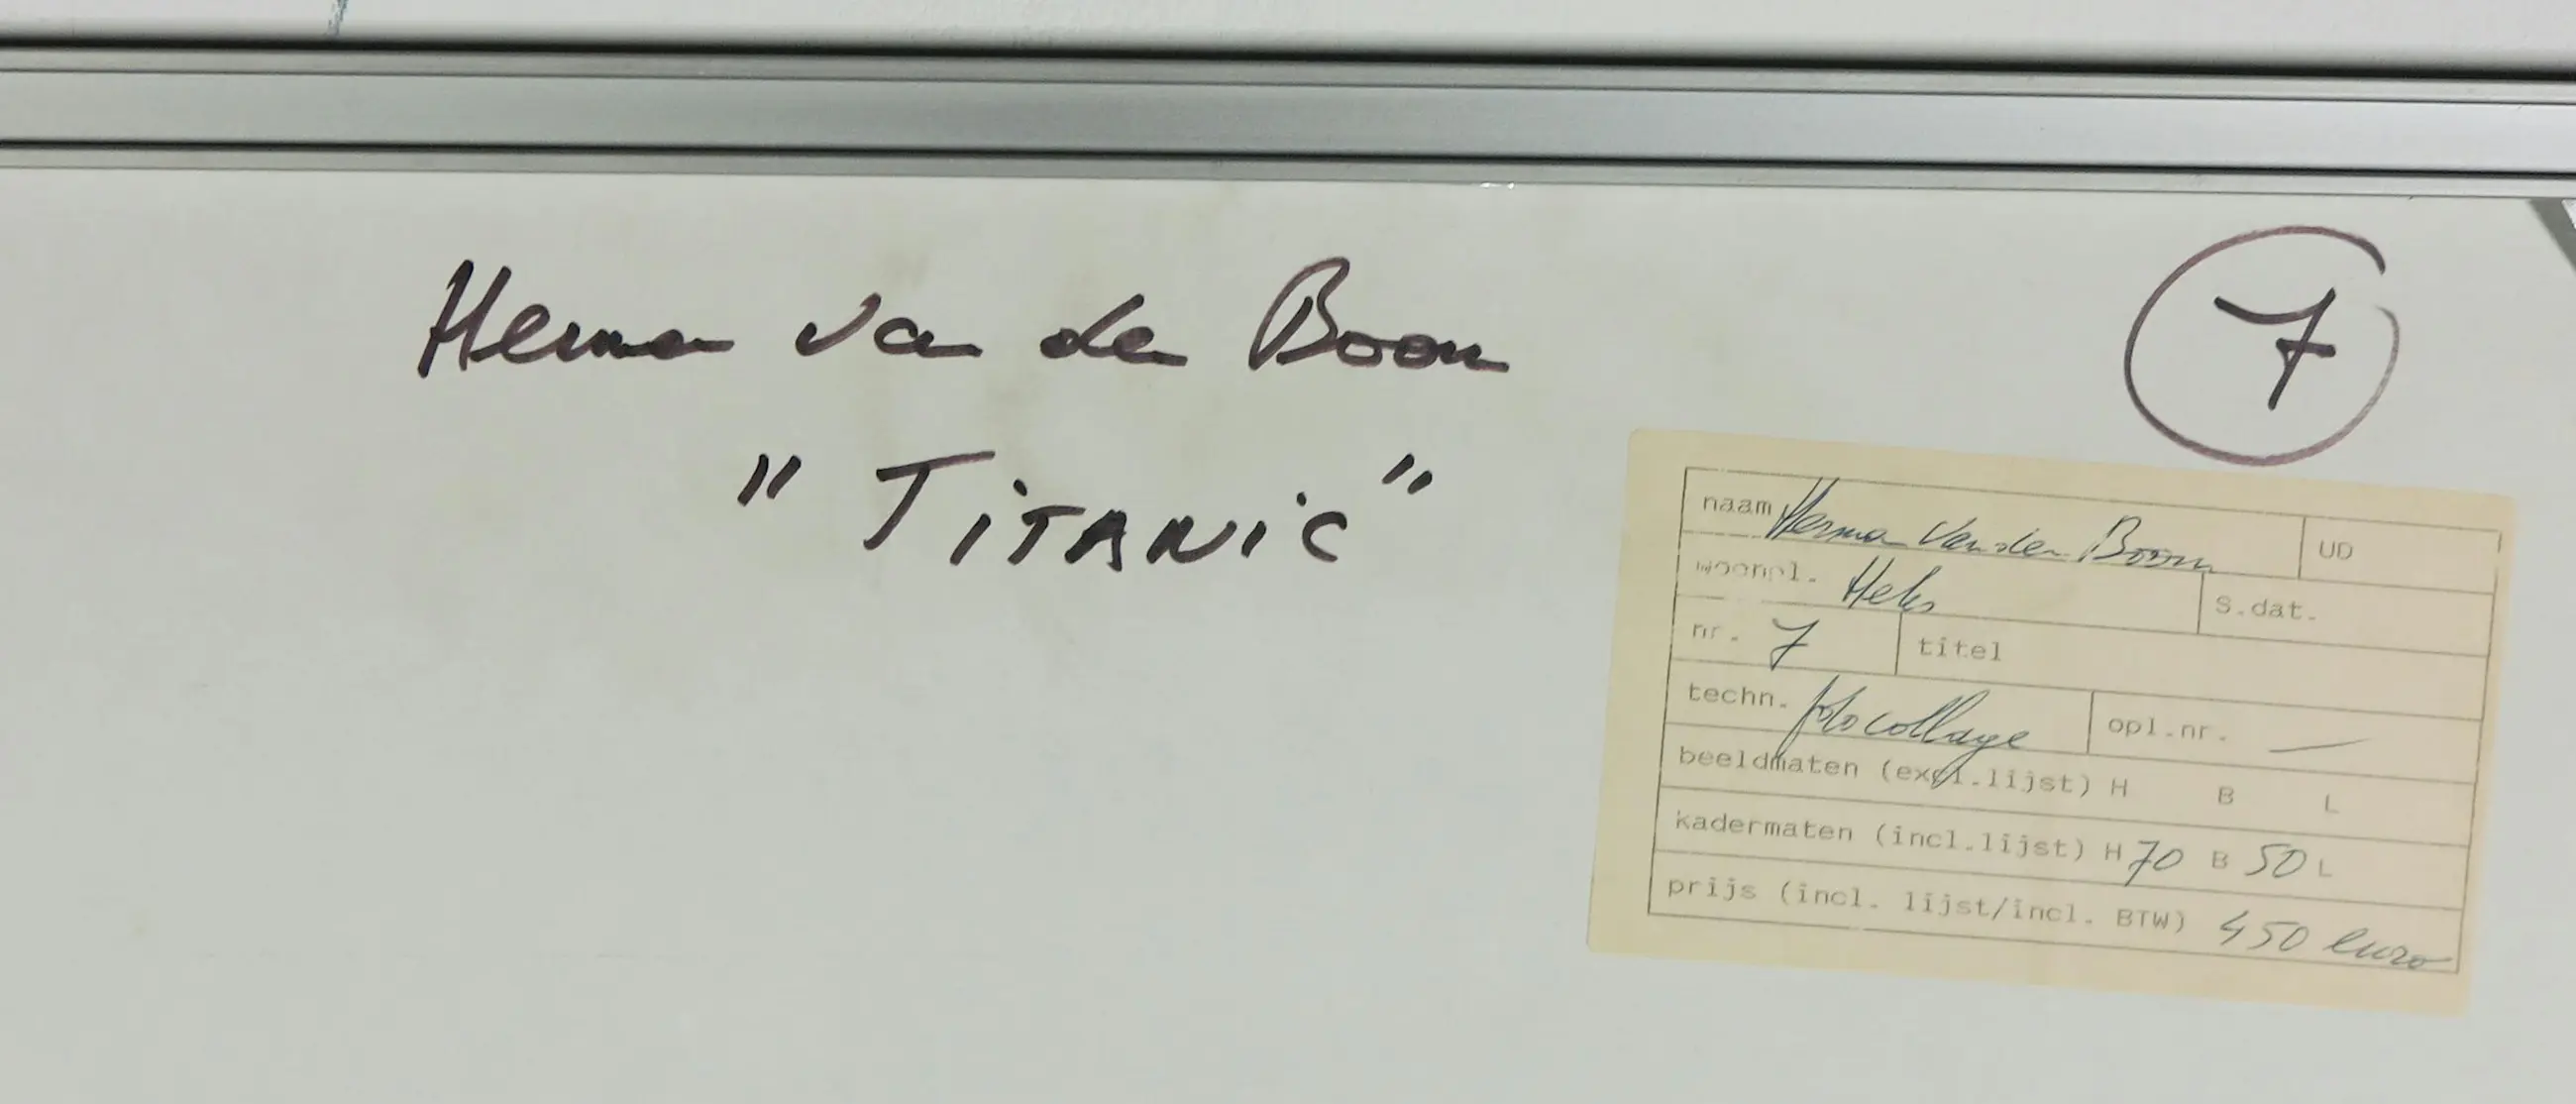 Herman van den Boom
7
"TiTANiC"
naam Herman Van den Boom UD
woonpl. Heks S.dat.
nr. 7 titel
techn. fotocollage opl.nr. —
beeldmaten (excl.lijst) H B L
kadermaten (incl.lijst) H 70 B 50 L
prijs (incl. lijst/incl. BTW) 450 euro